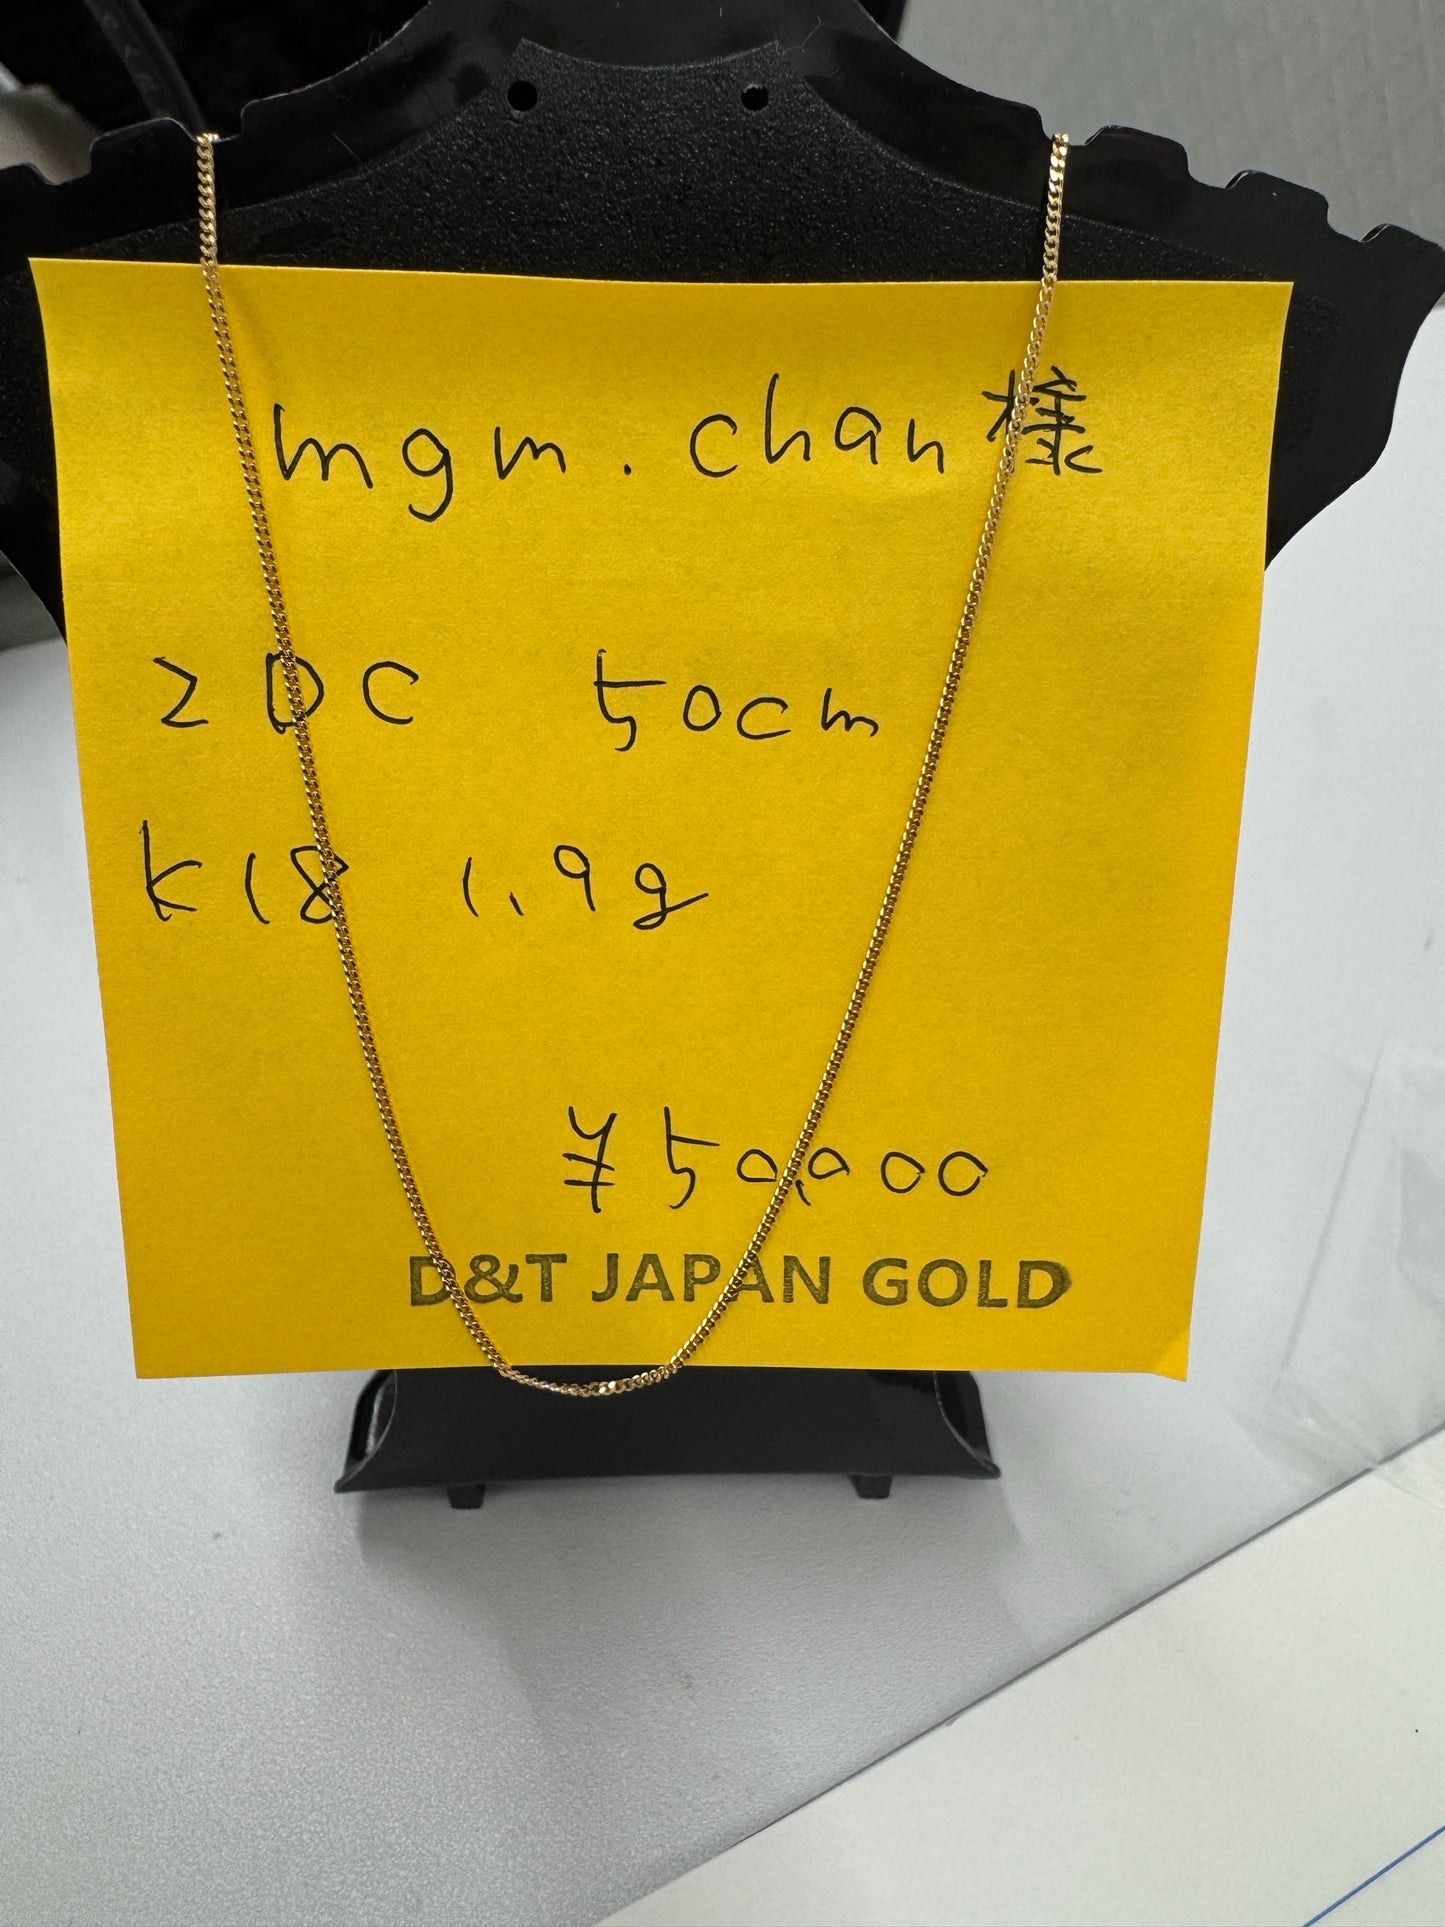 mgm.chan様
2DC 50cm
K18 1.9g
¥50,000
D&T JAPAN GOLD